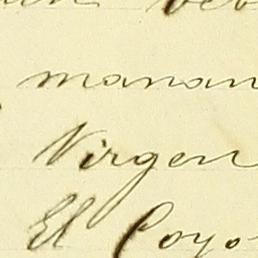 manan
Virgen
El Coyo